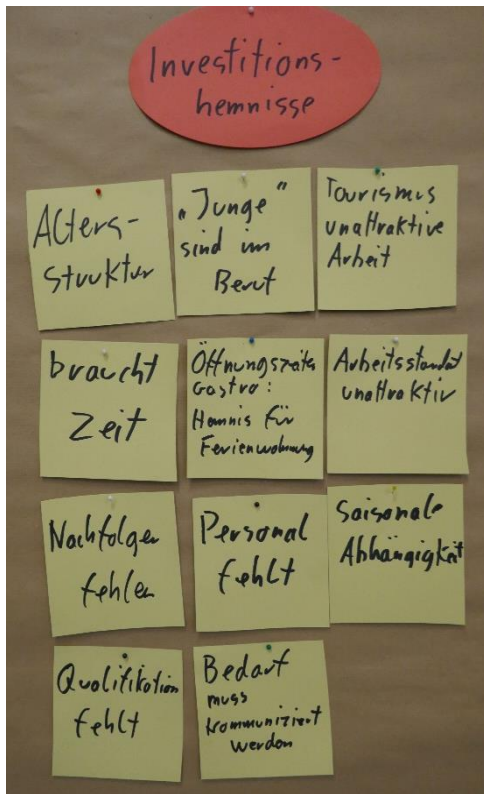 Investitions-
hemnisse
Alters-
struktur
„Junge"
sind im
Beruf
Tourismus
unattraktive
Arbeit
braucht
Zeit
Öffnungszeiten
Gastro:
Hemnis für
Ferienwohnung
Arbeitsstandort
unattraktiv
Nachfolger
fehlen
Personal
fehlt
Saisonale
Abhängigkeit
Qualifikation
fehlt
Bedarf
muss
kommuniziert
werden